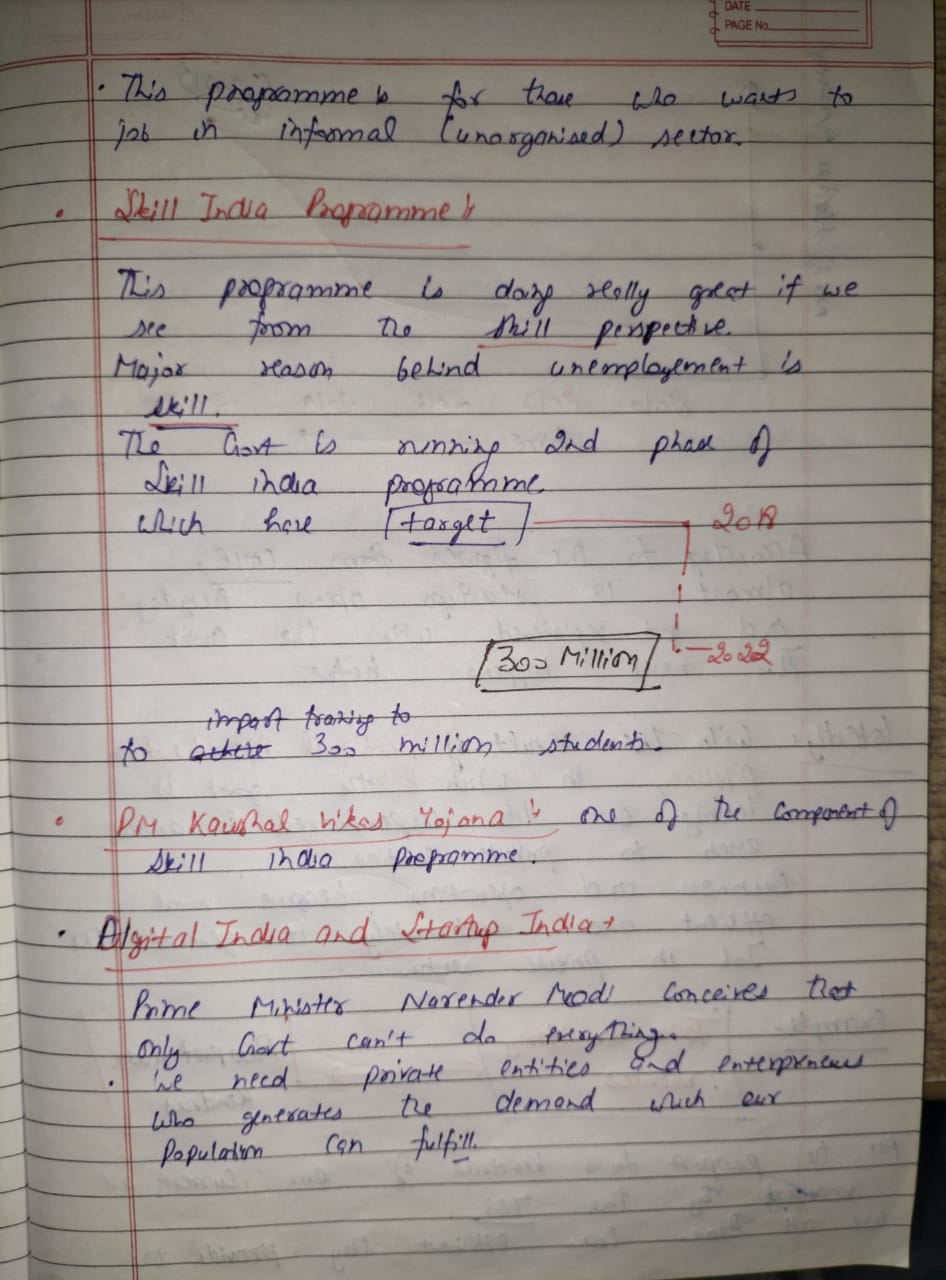 DATE
PAGE No.
• This programme is for those who wants to
job in informal (unorganised) sector.
• Skill India Programme :-
This programme is doing really great if we
see from the skill perspective.
Major reason behind unemployement is
skill.
The Govt is running 2nd phase of
Skill india programme
which have [target] 2018
[300 Million] 2022
impart traning to
to 300 million students.
• PM Kaushal Vikas Yojana :- one of the component of
skill india programme.
• Digital India and Startup India →
Prime Minister Narender Modi conceives that
only Govt can't do everything.
• We need private entities and enterpreneurs
who generates the demand which our
Population can fulfill.